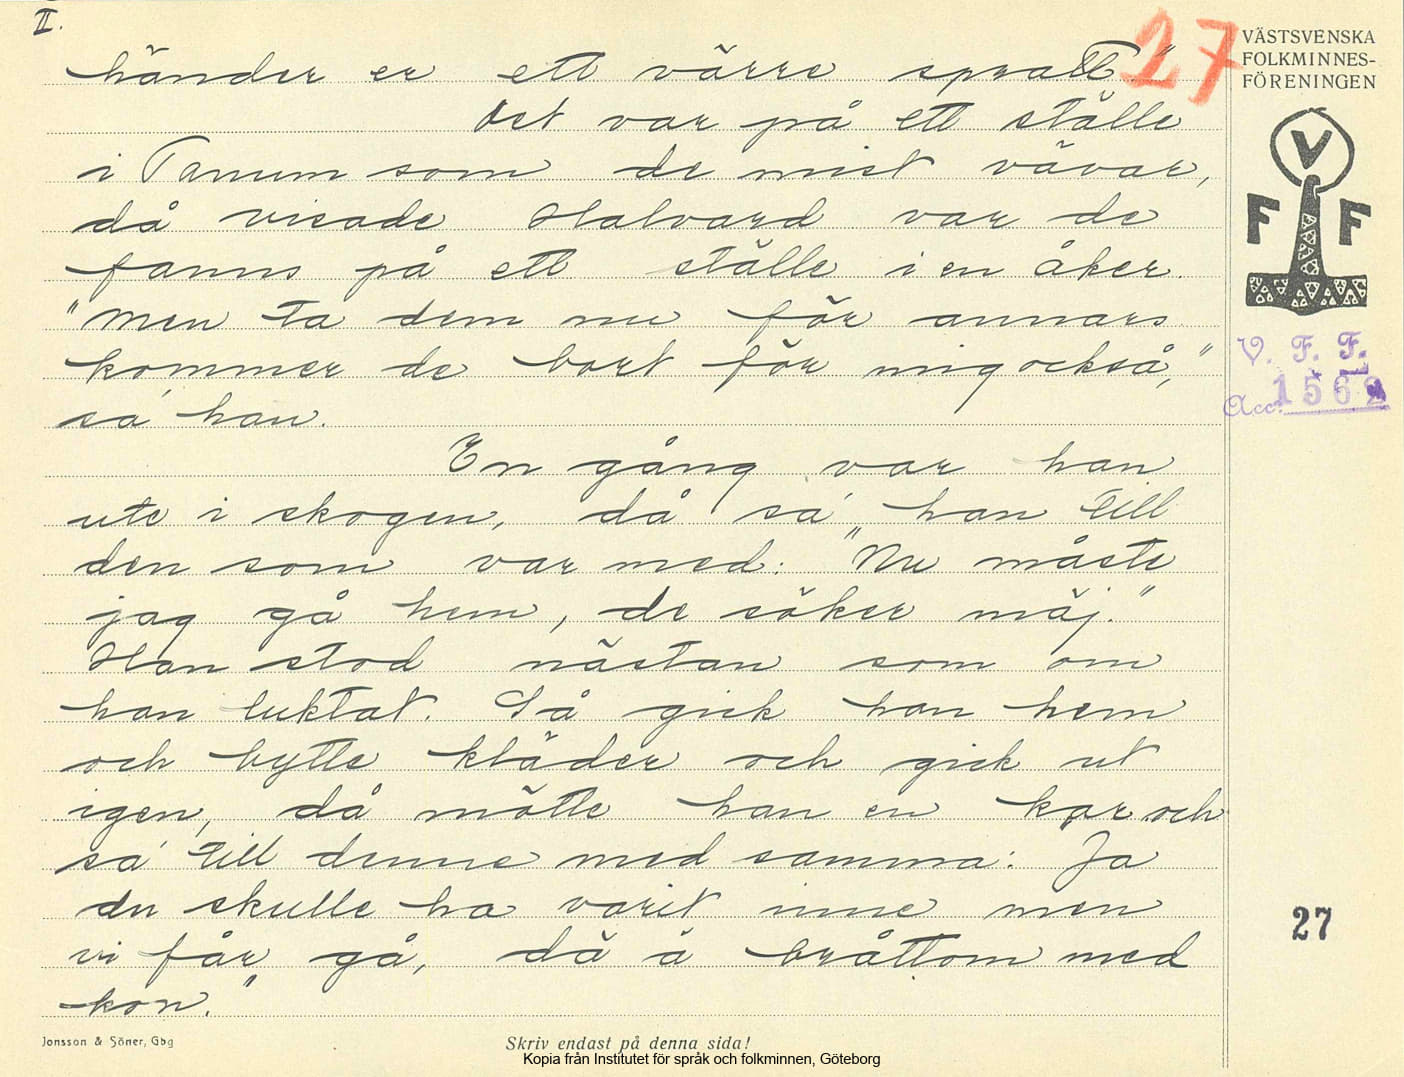 II.
27
VÄSTSVENSKA
FOLKMINNES-
FÖRENINGEN
V
F F
V. F. F.
Acc. 1562
händer er ett värre spratt."
Det var på ett ställe
i Tanum som de mist vävar,
då visade Halvard var de
fanns på ett ställe i en åker.
"Men ta dem nu för annars
kommer de bort för mig också,"
sa' han.
En gång var han
ute i skogen, då sa' han till
den som var med: "Nu måste
jag gå hem, de söker mäj."
Han stod nästan som om
han luktat. Så gick han hem
och bytte kläder och gick ut
igen, då mötte han en kar och
sa' till denne med samma: Ja
du skulle ha varit inne men
vi får gå, dä ä bråttom med
kon."
27
Jonsson & Söner, Gbg
Skriv endast på denna sida!
Kopia från Institutet för språk och folkminnen, Göteborg